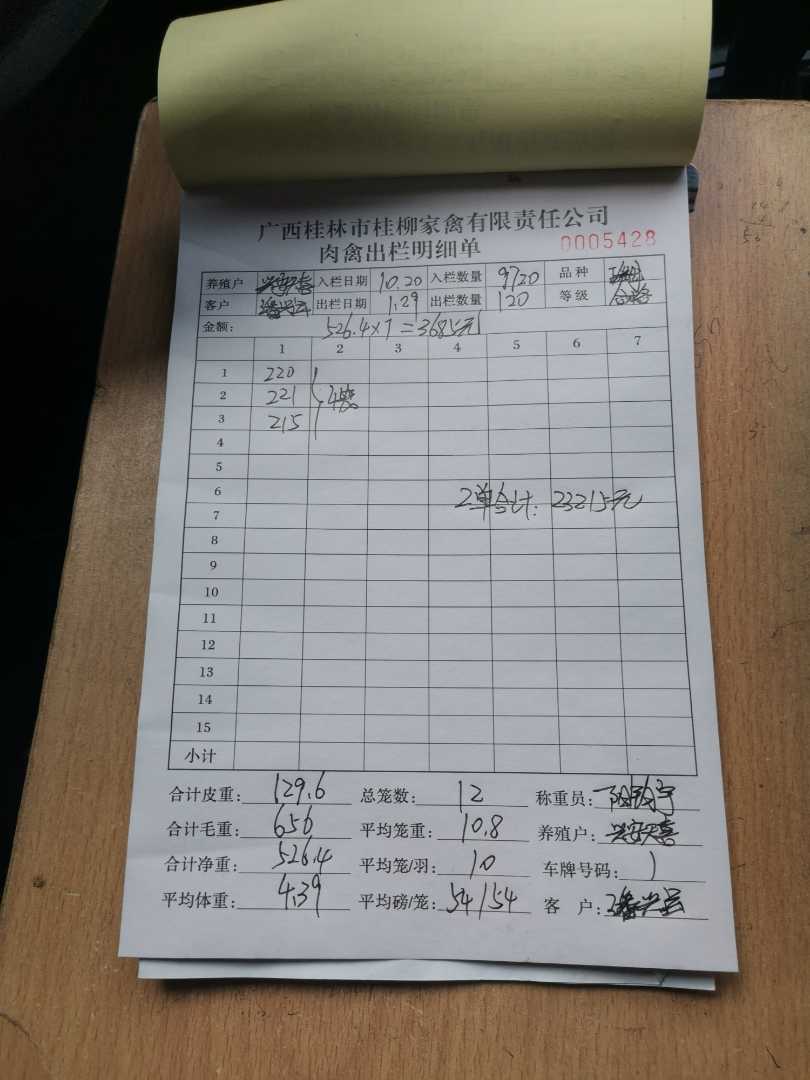 广西桂林市桂柳家禽有限责任公司
肉禽出栏明细单 0005428
养殖户 入栏日期 10.20 入栏数量 9720 品种
客户 出栏日期 1.29 出栏数量 120 等级 合格
金额: 526.4×7=3685元
1 2 3 4 5 6 7
1 220
2 221 4笼
3 215
4
5
6 2单合计: 23215元
7
8
9
10
11
12
13
14
15
小计
合计皮重: 129.6 总笼数: 12 称重员:
合计毛重: 656 平均笼重: 10.8 养殖户: 兴安天喜
合计净重: 526.4 平均笼/羽: 10 车牌号码:
平均体重: 4.39 平均磅/笼: 54/54 客户: